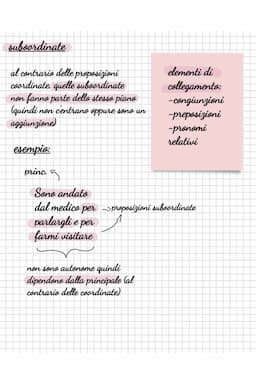 suboordinate
al contrario delle proposizioni
coordinate, quelle suboordinate
non fanno parte dello stesso piano
(quindi non centrano oppure sono un
aggiunzione)
elementi di
collegamento:
-congiunzioni
-preposizioni
-pronomi
relativi
esempio:
princ.
Sono andato
dal medico per
parlargli e per
farmi visitare
proposizioni suboordinate
non sono autonome quindi
dipendono dalla principale (al
contrario delle coordinate)